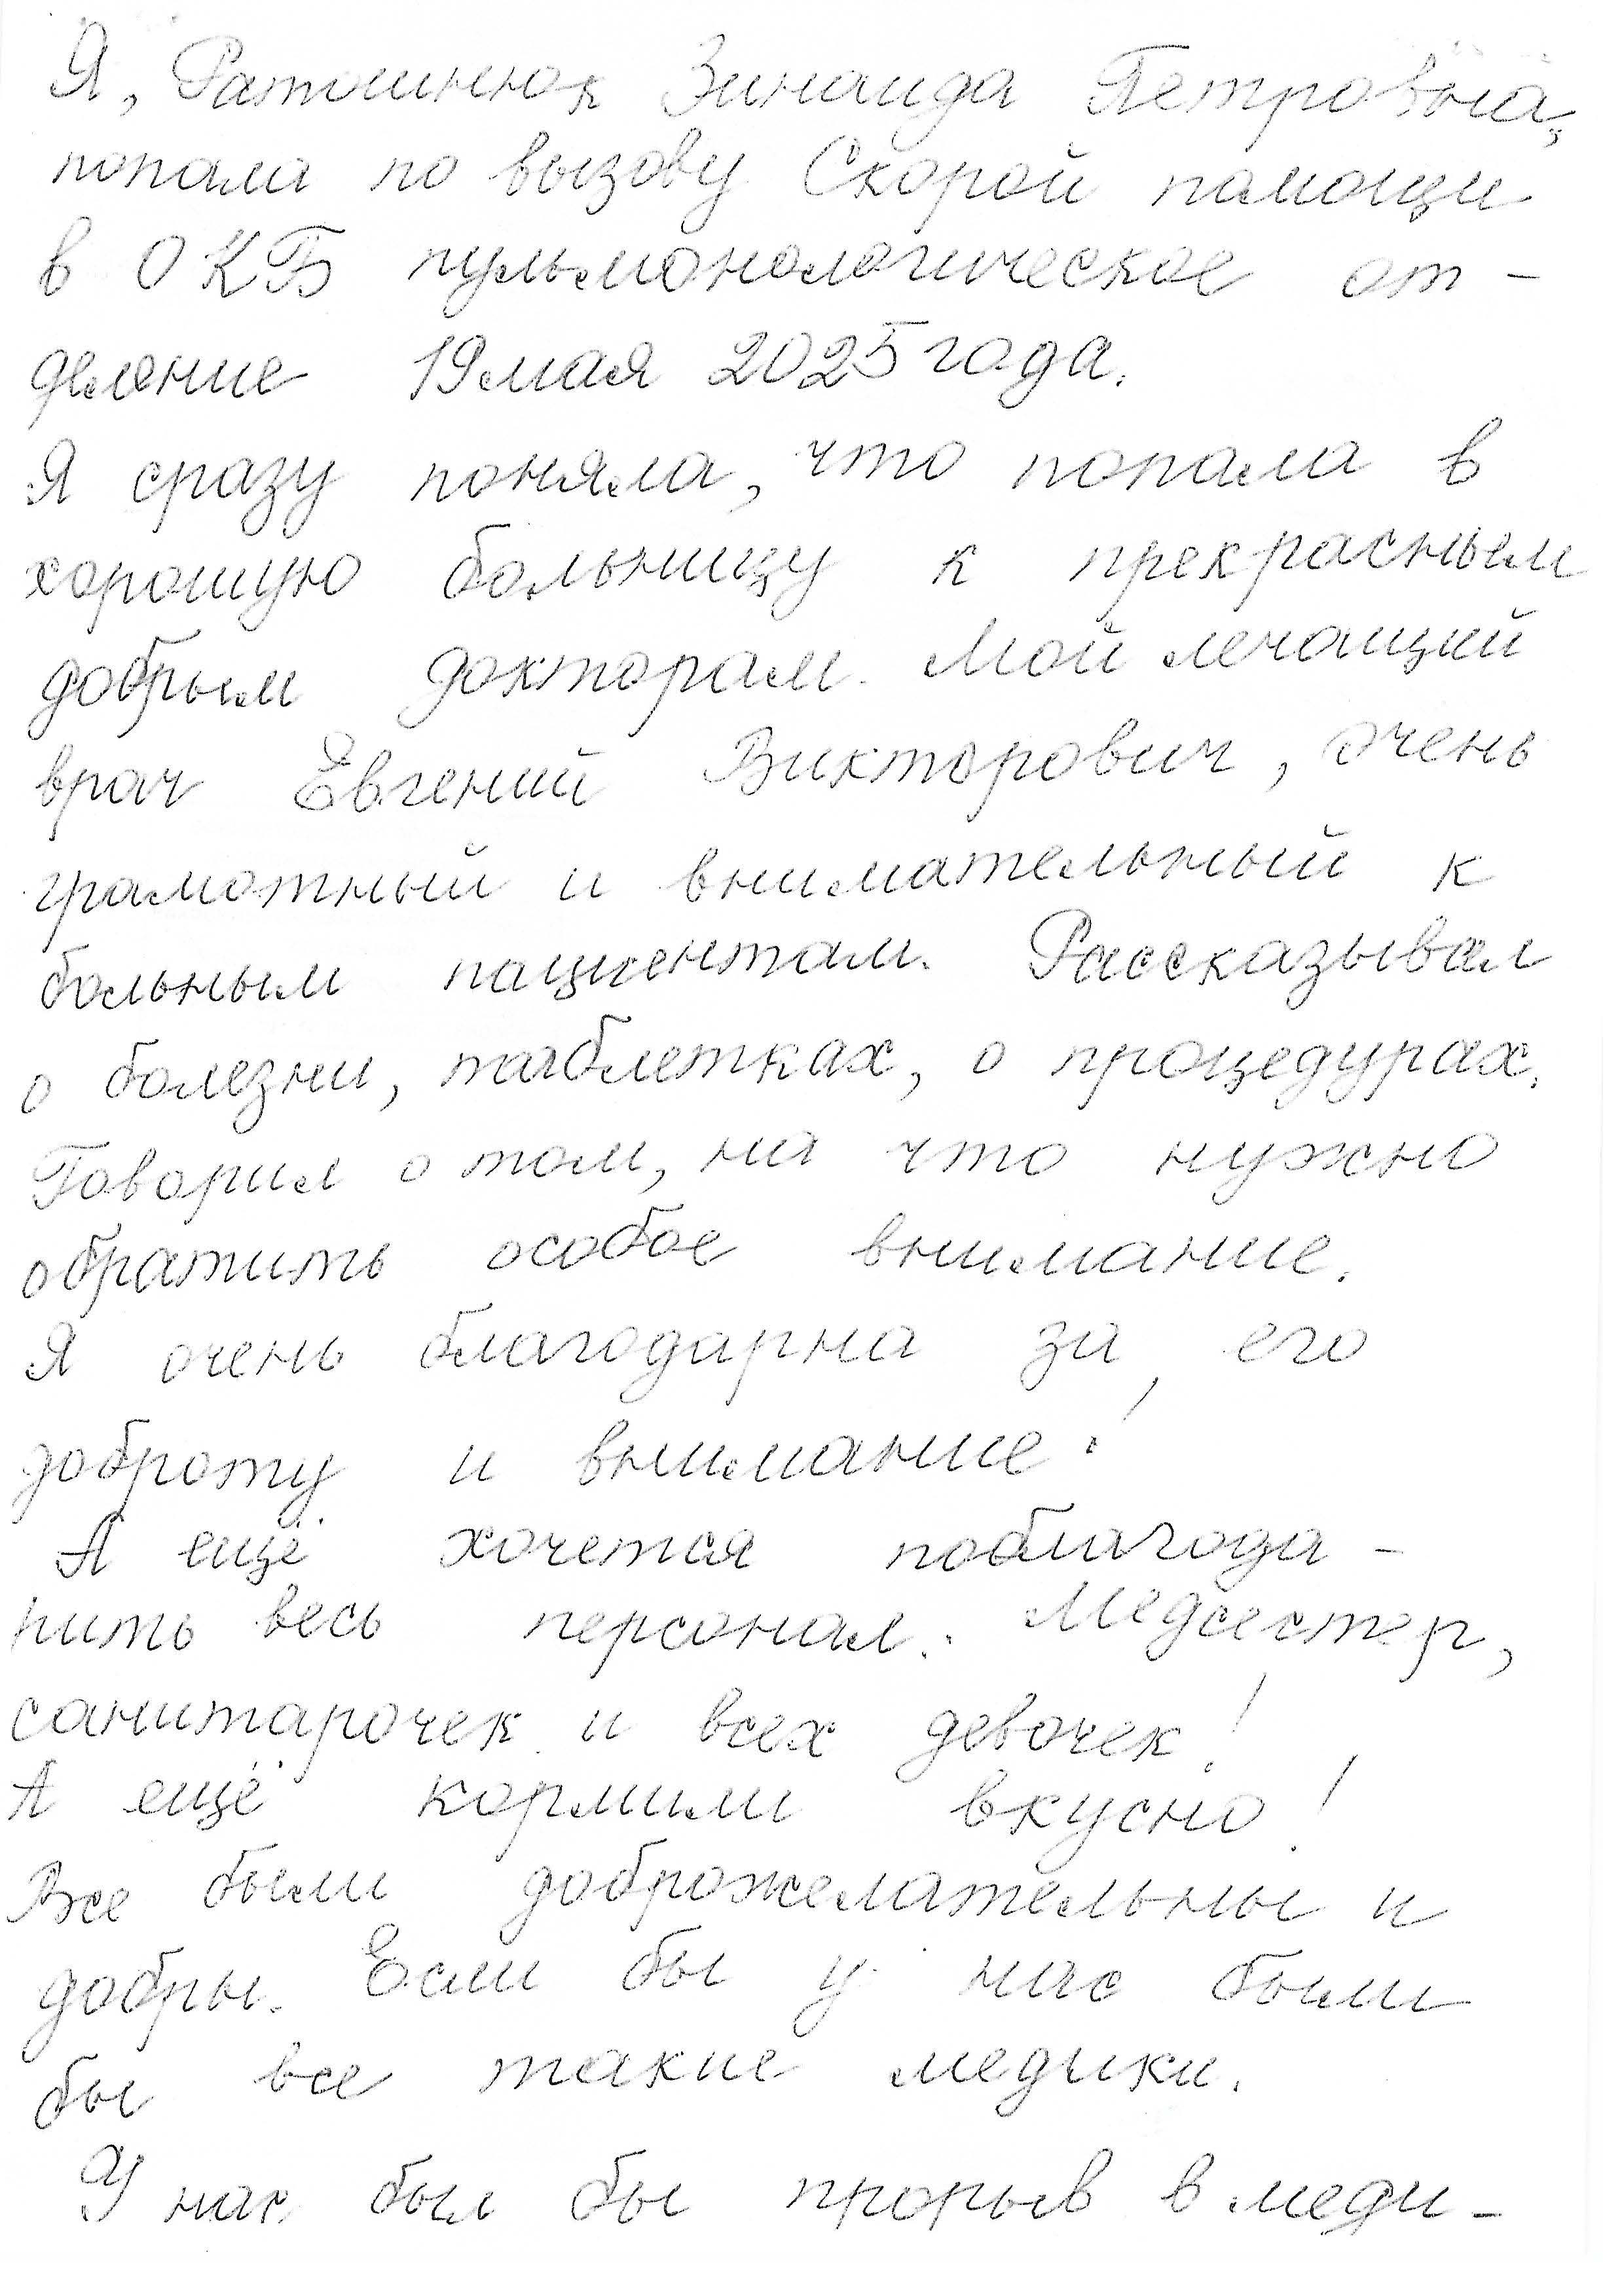 Я, Ратошнюк Зинаида Петровна,
попала по вызову Скорой помощи
в ОКБ пульмонологическое от-
деление 19 мая 2025 года.
Я сразу поняла, что попала в
хорошую больницу к прекрасным
добрым докторам. Мой лечащий
врач Евгений Викторович, очень
грамотный и внимательный к
больным пациентам. Рассказывал
о болезни, таблетках, о процедурах.
Говорил о том, на что нужно
обратить особое внимание.
Я очень благодарна за его
доброту и внимание!
А ещё хочется поблагода-
рить весь персонал. Медсестер,
санитарочек и всех девочек!
А ещё кормили вкусно!
Все были доброжелательны и
добры. Если бы у нас были
бы все такие медики.
У нас был бы прорыв в меди-